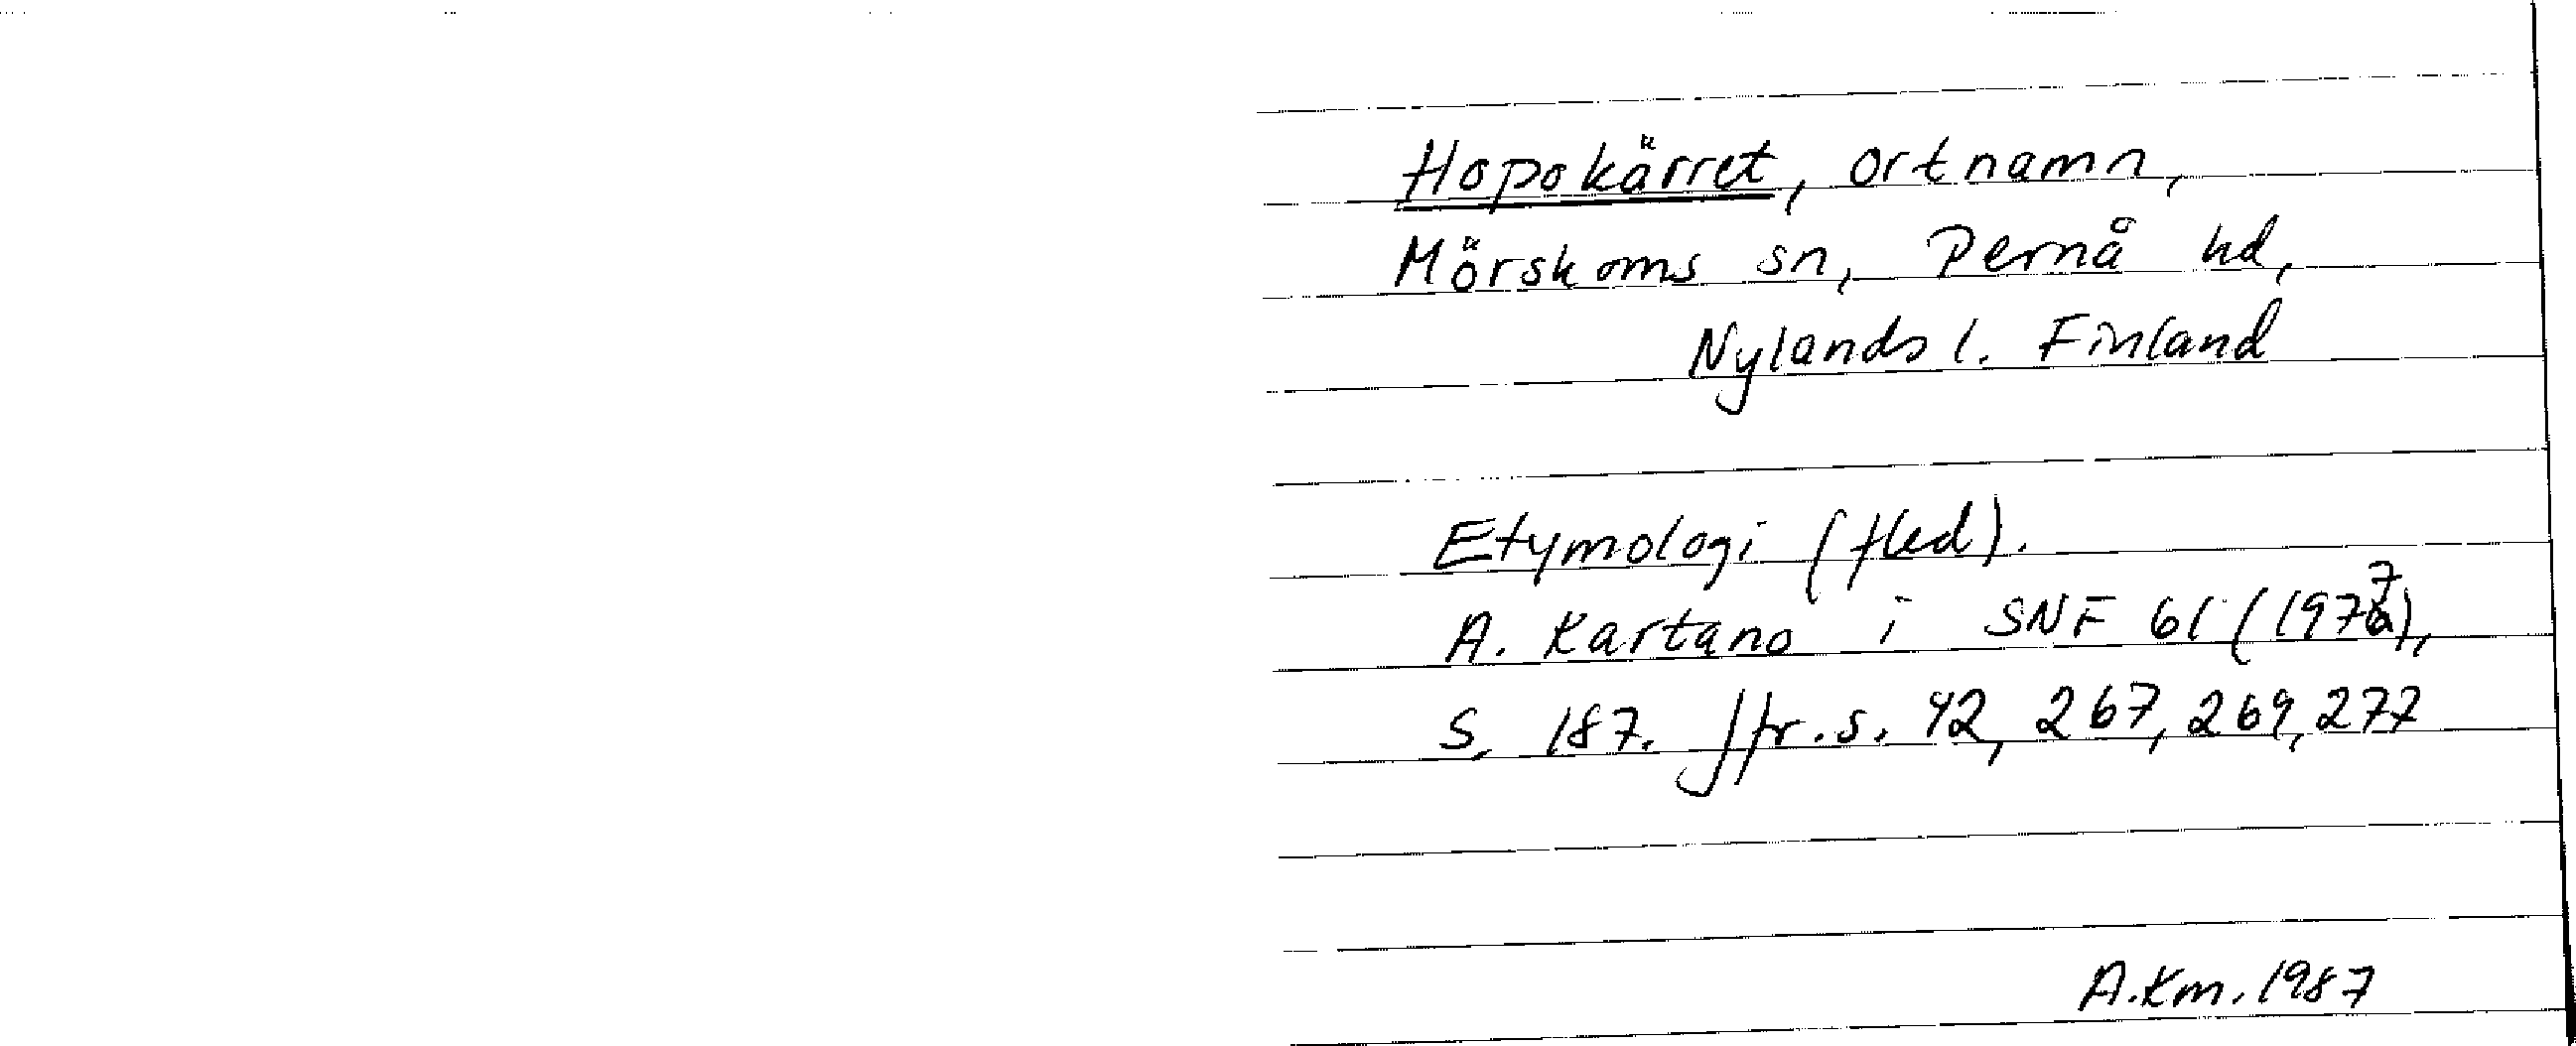 Hopokärret, ortnamn,
Mörskoms sn, Pernå hd,
Nylands l. Finland
Etymologi (fled).
A. Kartano i SNF 61 (1977),
S. 187. Jfr. s. 42, 267, 269, 277
A.Km. 1987